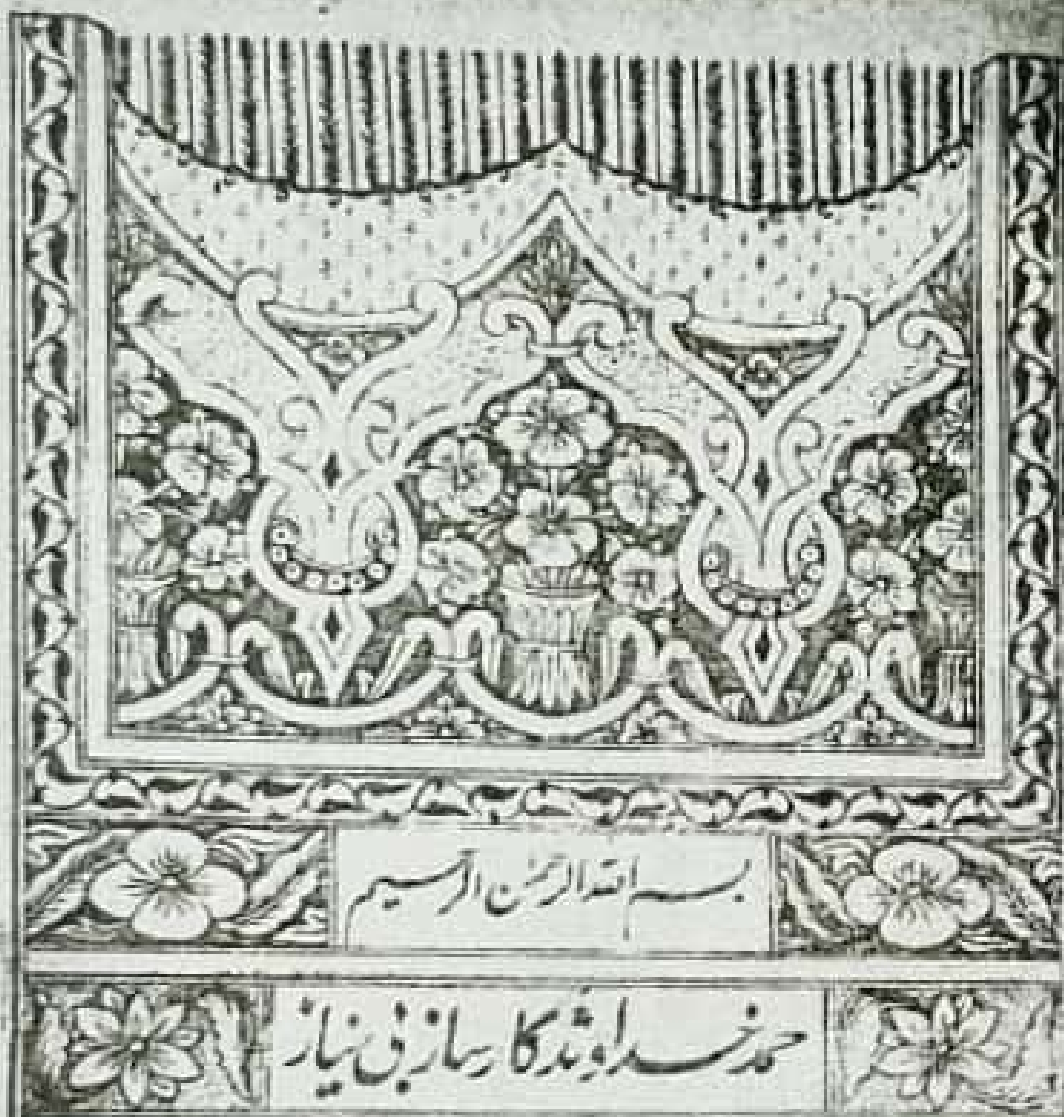 بسم الله الرحمن الرحیم
حمد خداوند کارساز بی نیاز